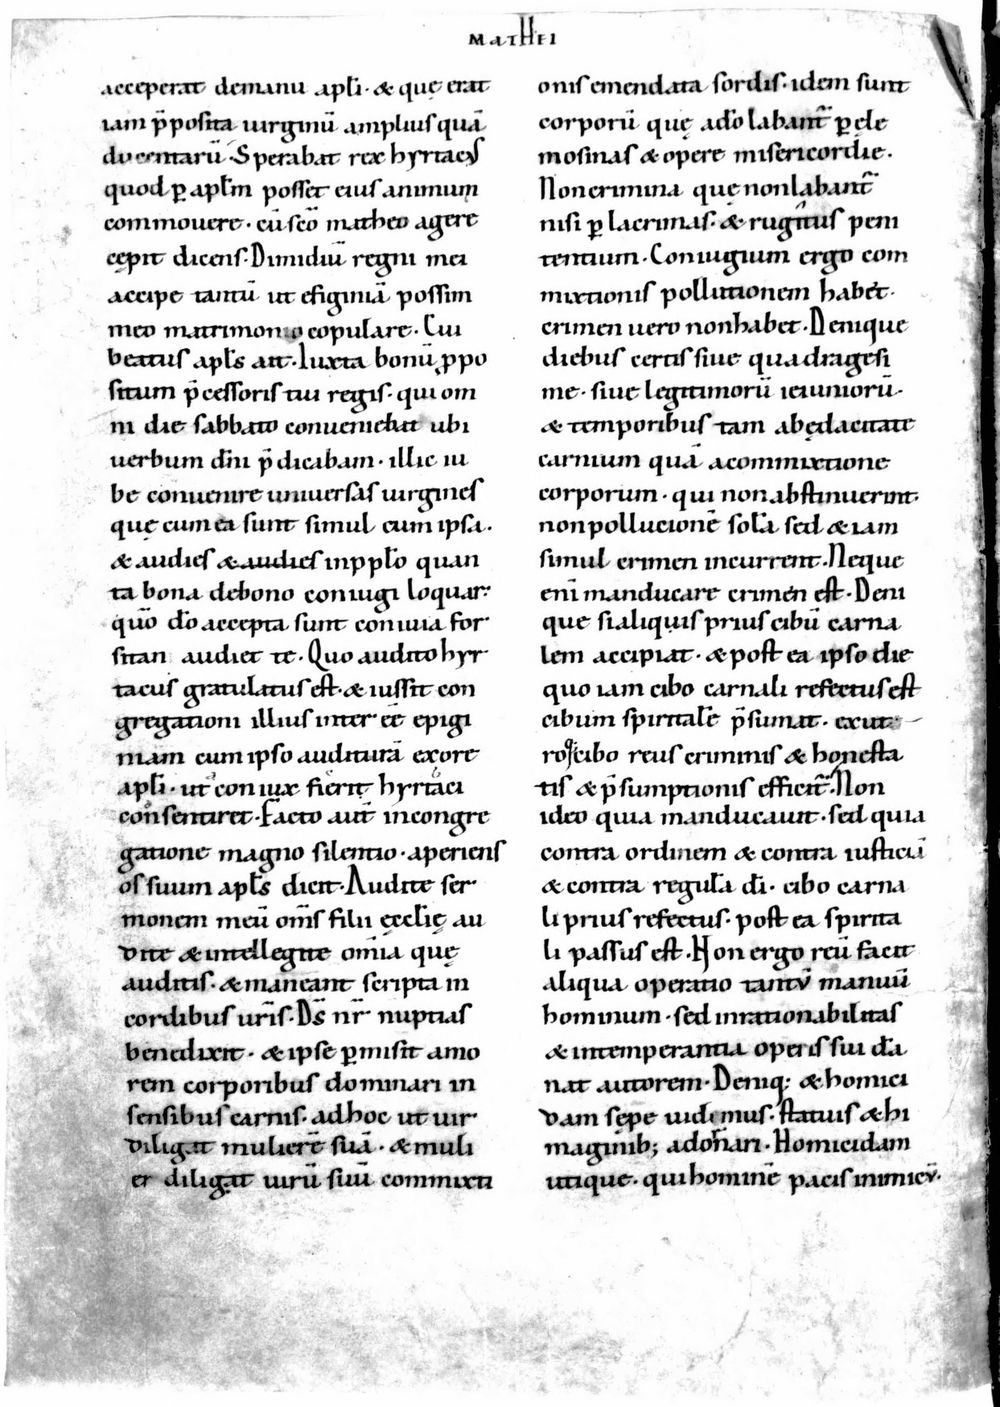 MATHEI
acceperat demanu apłi · & quę erat
iam p̄posita uirginū amplius quā
ducentarū · Sperabat rex hyrtacus
quod ꝑ apłm posset eius animum
commouere · cū sc̄o matheo agere
cępit dicens · Dimidiū regni mei
accipe tantū ut efiginiā possim
meo matrimonio copulare · Cui
beatus apłs ait · Iuxta bonū ꝓpo
situm p̄cessoris tui regis · qui om
ni die sabbato conueniebat ubi
uerbum dn̄i p̄dicabam · illic iu
be conuenire uniuersas uirgines
quę cum ea sunt simul cum ipsa ·
& audies & audies inpplo quan
ta bona debono coniugi loquar ·
quō do accepta sunt conuiia for
sitan audiet te · Quo audito hyr
tacus gratulatus est · & iussit con
gregationi illius inter eē epigi
niam cum ipso auditurā exore
apłi · ut coniux fierit hyrtaci
consentiret · Facto aut̄ incongre
gatione magno silentio · aperiens
os suum apłs dicit · Audite ser
monem meū om̄s filii ęcclię au
dite & intellegite om̄ia quę
auditis · & maneant scripta in
cordibus ur̄is · Ds̄ nr̄ nuptias
benedixit · & ipse ꝑmisit amo
rem corporibus dominari in
sensibus carnis · adhoc ut uir
diligat mulierē suā · & muli
er diligat uirū suū commixti
onis emendata sordis · idem sunt
corporū quę ado labant̄ ꝑ ele
mosinas & opere misericordię ·
Non crimina quę non labant̄
nisi ꝑ lacrimas · & rugitus peni
tentium · Coniugium ergo com
mixtionis pollutionem habet ·
crimen uero nonhabet · Denique
diebus certis siue quadragesi
me · siue legitimorū ieiuniorū ·
& temporibus tam abędacitate
carnium quā acommixtione
corporum · qui non abstinuerint ·
non pollucionē sola sed & iam
simul crimen incurrent · Neque
eni manducare crimen est · Deni
que si aliquis prius cibū carna
lem accipiat · & post ea ipso die
quo iam cibo carnali refectus est
cibum spiritalē p̄sumat · exut
ros cibo reus criminis & honesta
tis & p̄sumptionis efficit̄ · Non
ideo quia manducauit · sed quia
contra ordinem & contra iusticiā
& contra regula di · cibo carna
li prius refectus · post ea spirita
li passus est · Non ergo reū facit
aliqua operatio tantū manuū
hominum · sed inrationabilitas
& intemperantia operis sui da
nat autorem · Deniq; & homici
dam sepe uidemus · statuis & hi
maginib; adornari · Homicidam
utique · qui hominē pacis inimicū ·